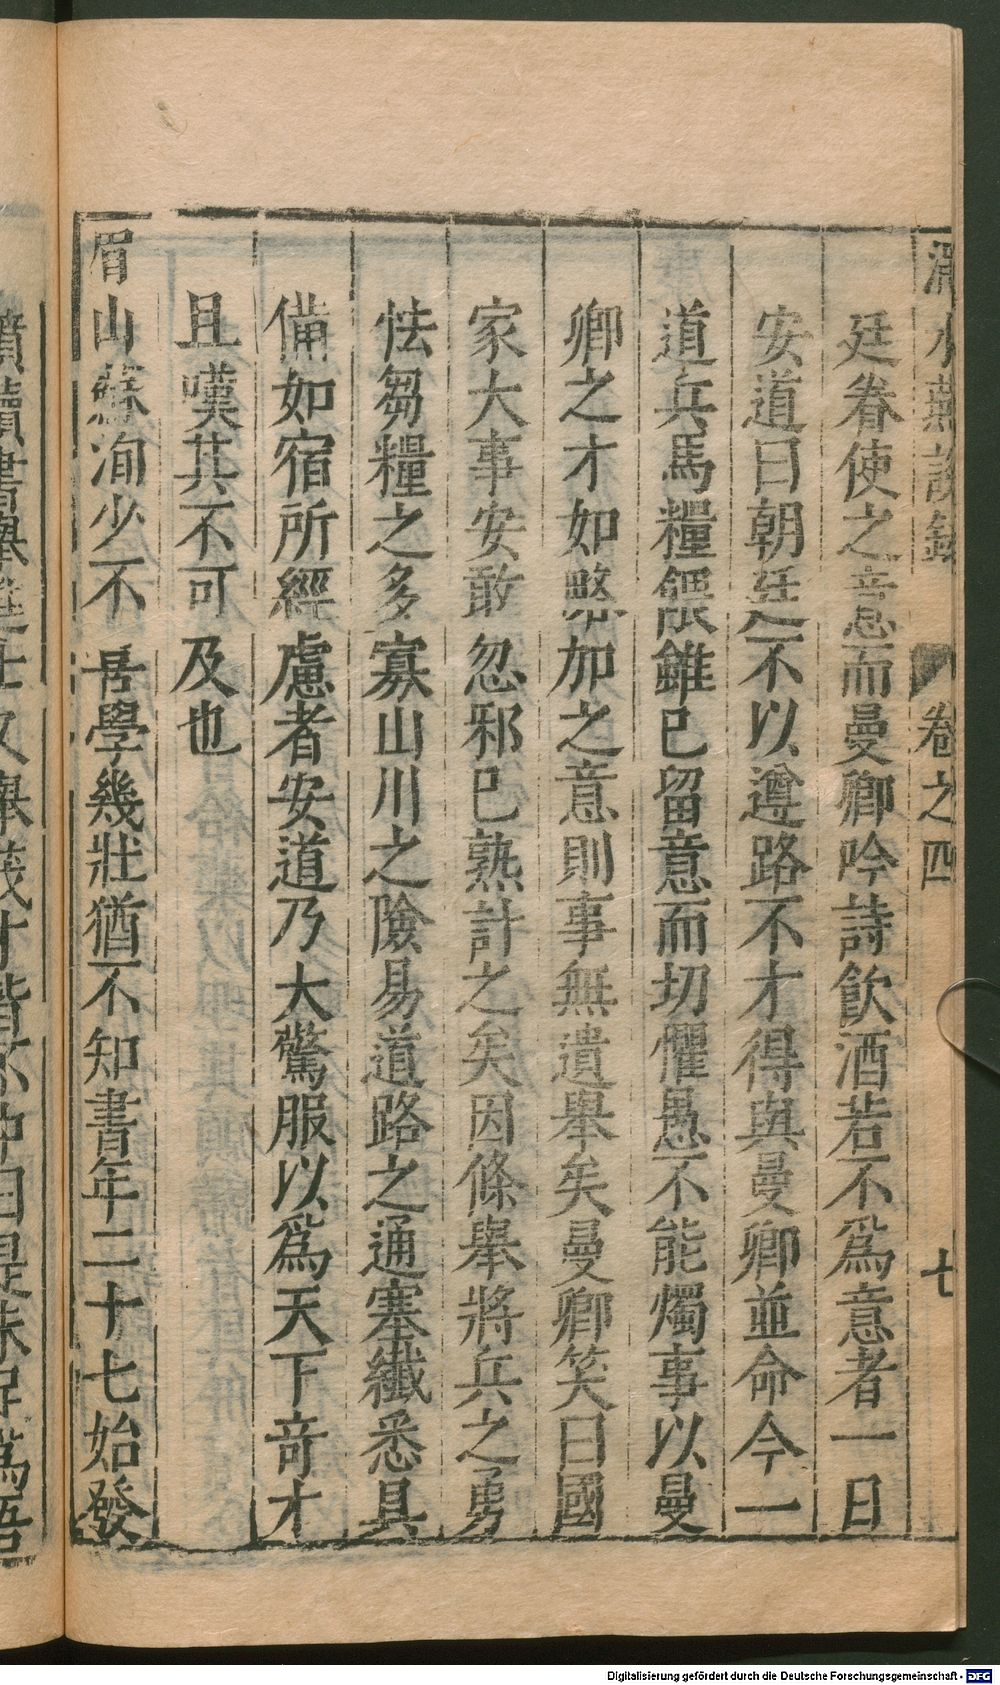 澠水燕談錄 卷之四 七
廷眷使之意而曼卿吟詩飲酒若不爲意者一日
安道曰朝廷不以遵路不才得與曼卿並命今一
道兵馬糧餼雖已留意而切懼愚不能燭事以曼
卿之才如略加之意則事無遺舉矣曼卿笑曰國
家大事安敢忽邪已熟計之矣因條舉將兵之勇
怯芻糧之多寡山川之險易道路之通塞纖悉具
備如宿所經慮者安道乃大驚服以爲天下竒才
且嘆其不可及也
眉山蘇洵少不喜學幾壯猶不知書年二十七始發
憤讀書舉進士又舉茂才皆不中曰是未足爲吾
Digitalisierung gefördert durch die Deutsche Forschungsgemeinschaft - DFG